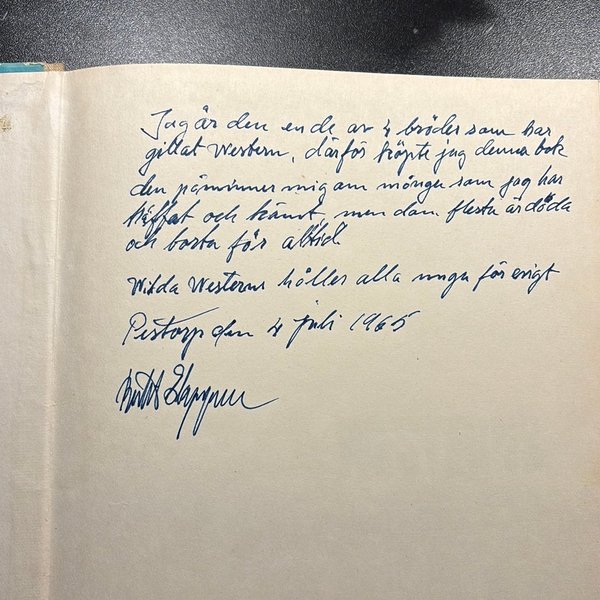 Jag är den ende av 4 bröder som har
gillat Western, därför köpte jag denna bok
den påminner mig om många som jag har
träffat och känt, men dom flesta är döda
och borta för alltid.
Wilda Western håller alla unga för evigt
den 4 juli 1965